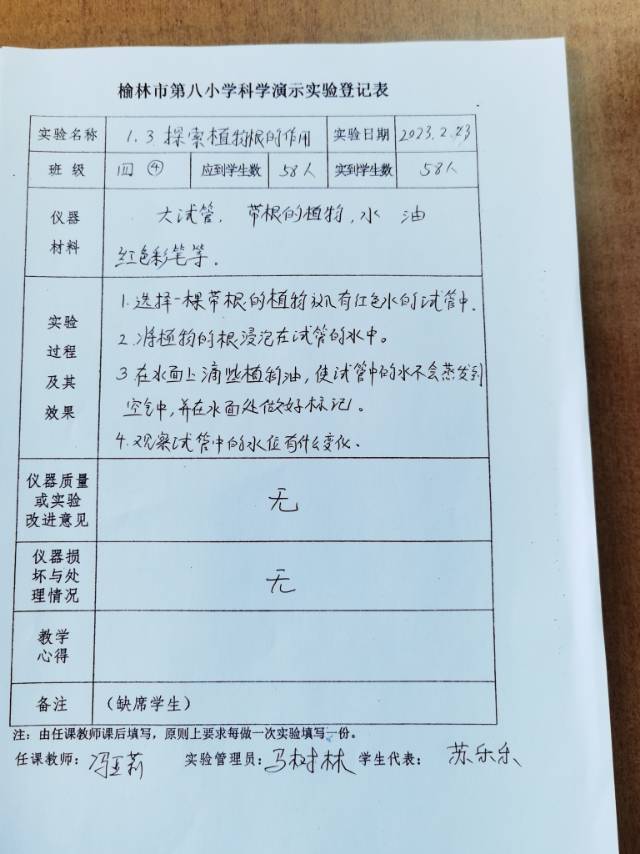 榆林市第八小学科学演示实验登记表
实验名称 1.3 探索植物根的作用 实验日期 2023.2.23
班 级 四 ④ 应到学生数 58人 实到学生数 58人
仪器 大试管, 带根的植物, 水 油
材料 红色彩笔等.
实验 1.选择一棵带根的植物 有红色水的试管中.
过程 2.将植物的根浸泡在试管的水中。
及其 3 在水面上滴些植物油,使试管中的水不会蒸发到
效果 空气中,并在水面处做好标记。
4.观察试管中的水位有什么变化.
仪器质量
或实验 无
改进意见
仪器损
坏与处 无
理情况
教学
心得
备注 (缺席学生)
注:由任课教师课后填写,原则上要求每做一次实验填写一份。
任课教师: 冯亚莉 实验管理员: 马树林 学生代表: 苏乐乐